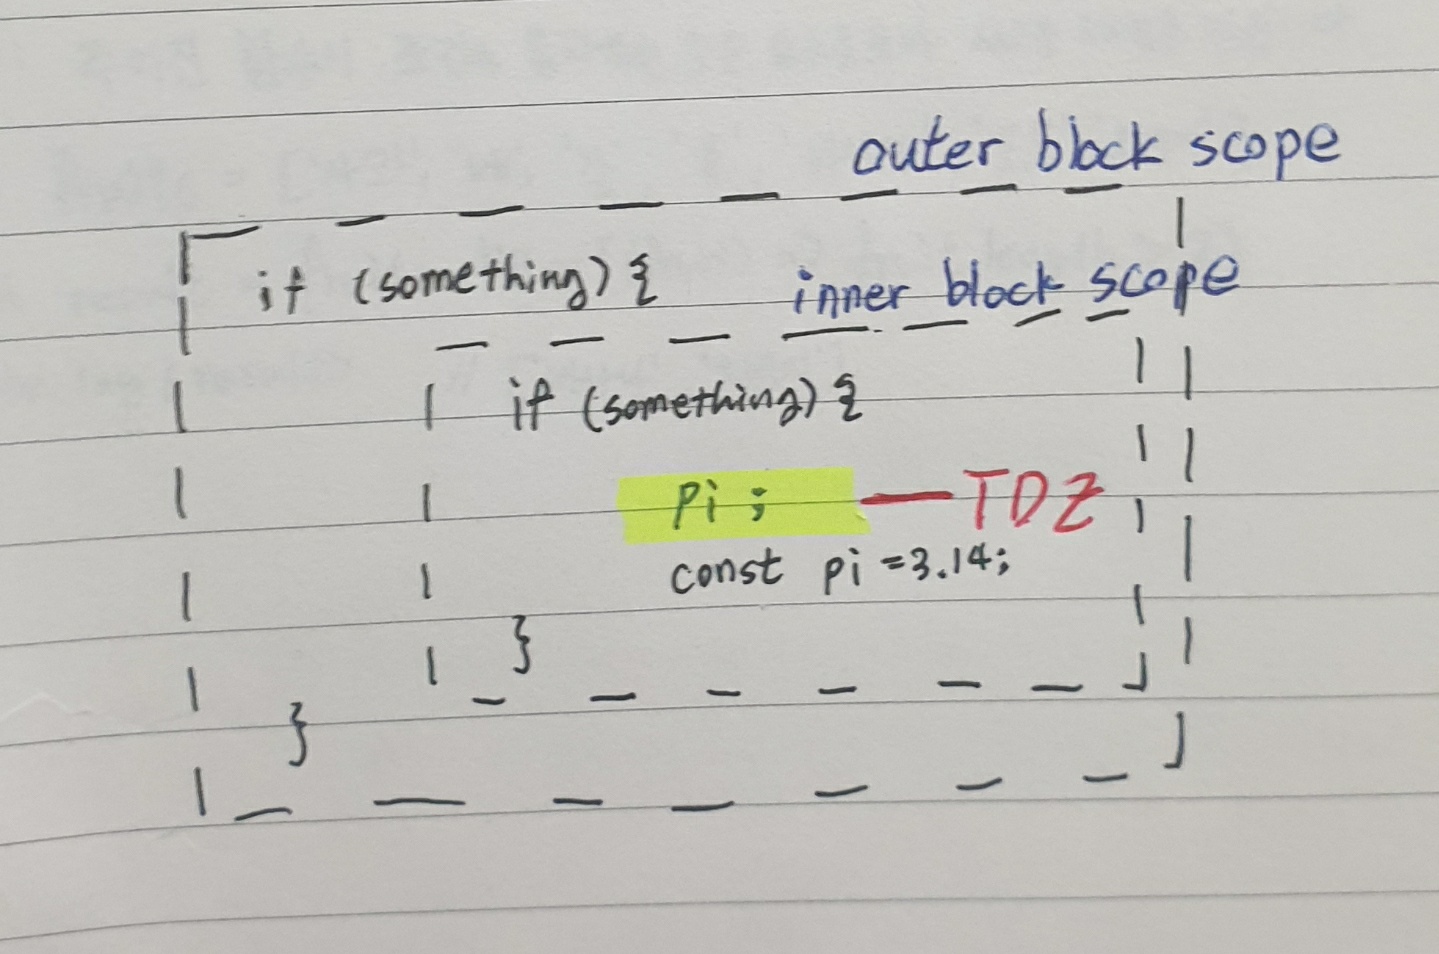 outer block scope
if (something) {
inner block scope
if (something) {
Pi; — TDZ
const pi = 3.14;
}
}